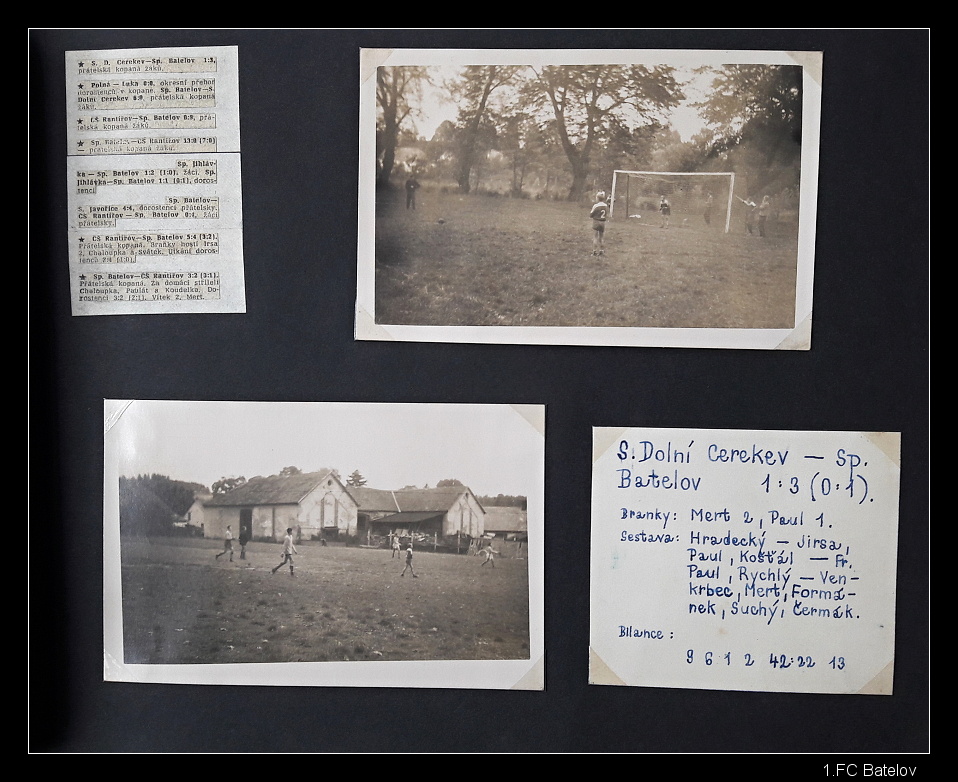 ★ S. D. Cerekev—Sp. Batelov 1:3,
přátelská kopaná žáků.
★ Polná — Luka 0:0, okresní přebor
dorostenců v kopané. Sp. Batelov—S.
Dolní Cerekev 6:0, přátelská kopaná
žáků.
★ ČS Rantířov—Sp. Batelov 0:8, přá-
telská kopaná žáků.
★ Sp. Batelov—ČS Rantířov 13:0 (7:0)
— přátelská kopaná žáků.
Sp. Jihláv-
ka — Sp. Batelov 1:2 (1:0), žáci. Sp.
Jihlávka—Sp. Batelov 1:1 (0:1), doros-
tenci.
Sp. Batelov—
S. Javořice 4:4, dorostenci přátelsky.
ČS Rantířov — Sp. Batelov 0:4, žáci
přátelsky.
★ ČS Rantířov—Sp. Batelov 5:4 (3:2).
Přátelská kopaná. Branky hostí Jirsa
2, Chaloupka a Světek. Utkání doros-
tenců 2:4 (1:0).
★ Sp. Batelov—ČS Rantířov 3:2 (3:1).
Přátelská kopaná. Za domácí stříleli
Chaloupka, Paulát a Koudelka. Do-
rostenci 3:2 (2:1). Vítek 2, Mert.
S. Dolní Cerekev — Sp.
Batelov 1:3 (0:1).
Branky: Mert 2, Paul 1.
Sestava: Hradecký — Jirsa,
Paul, Košťál — Fr.
Paul, Rychlý — Ven-
krbec, Mert, Formá-
nek, Suchý, Čermák.
Bilance:
9 6 1 2 42:22 13
1.FC Batelov